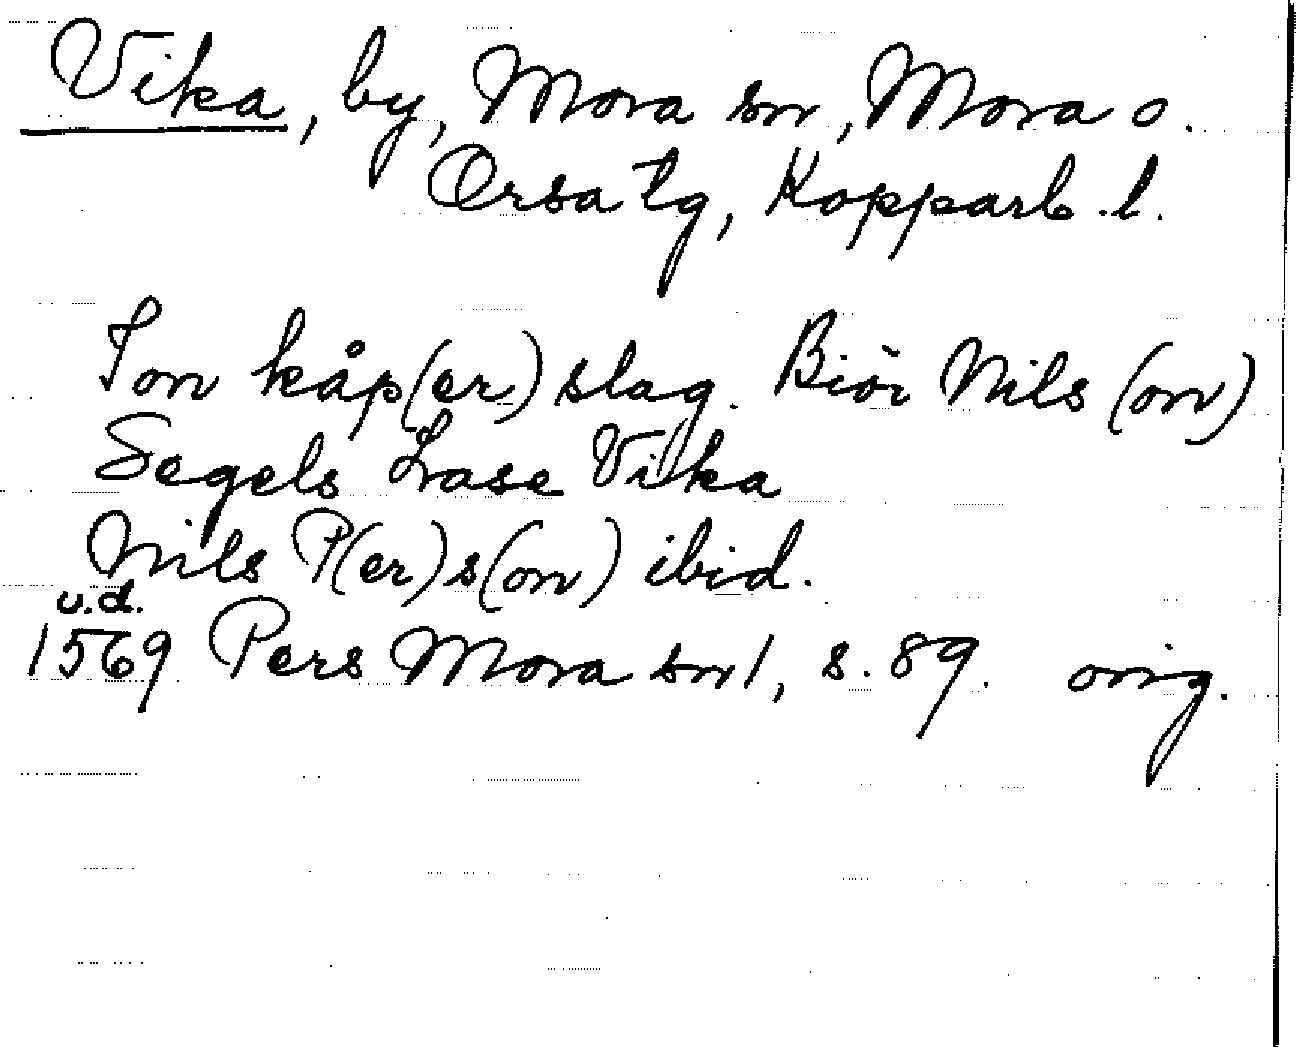 Vika, by, Mora sn, Mora o.
Orsa tg, Kopparb. l.
Jon kåp(er)slag. Biör Nils (on)
Segels Lase Vika
Nils P(er)s(on) ibid.
u.d.
1569 Pers Mora sn 1, s. 89. orig.